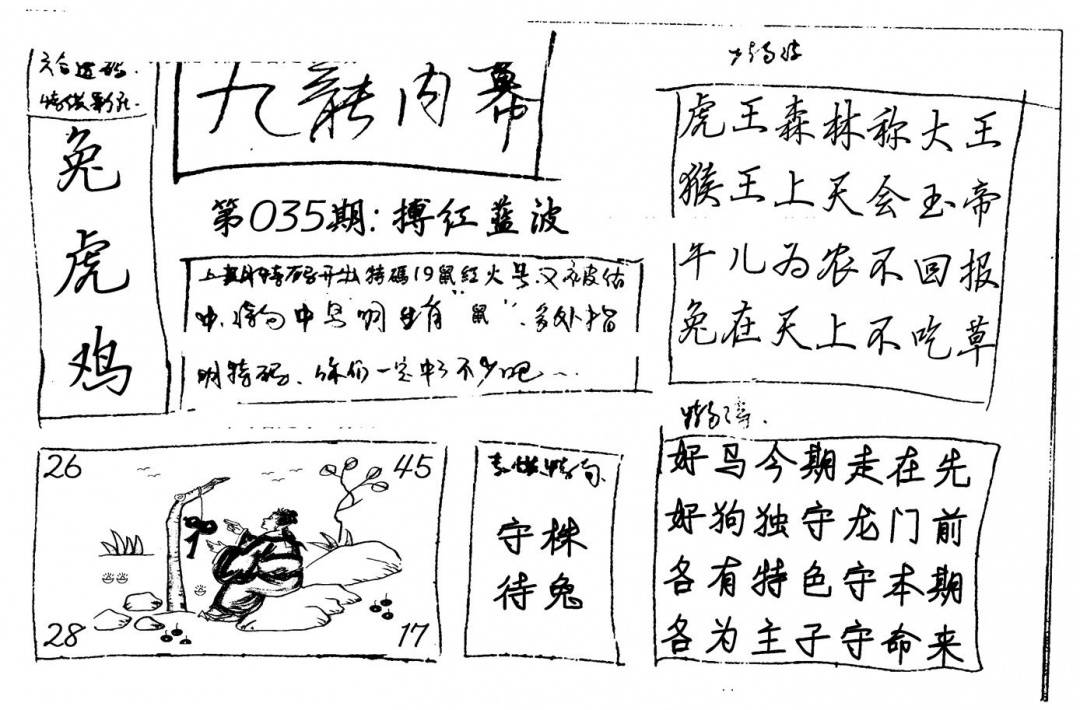 六合透码.
九龍内幕
兔
虎
鸡
第035期: 搏红蓝波
上期特码开出特碼19鼠红火号.又被估
中.特句中马明生肖"鼠".多处指
明特码、你们一定中了不少吧...
虎王森林称大王
猴王上天会玉帝
牛儿为农不回报
兔在天上不吃草
26
45
28
17
守株
待兔
好马今期走在先
好狗独守龙门前
各有特色守本期
各为主子守命来